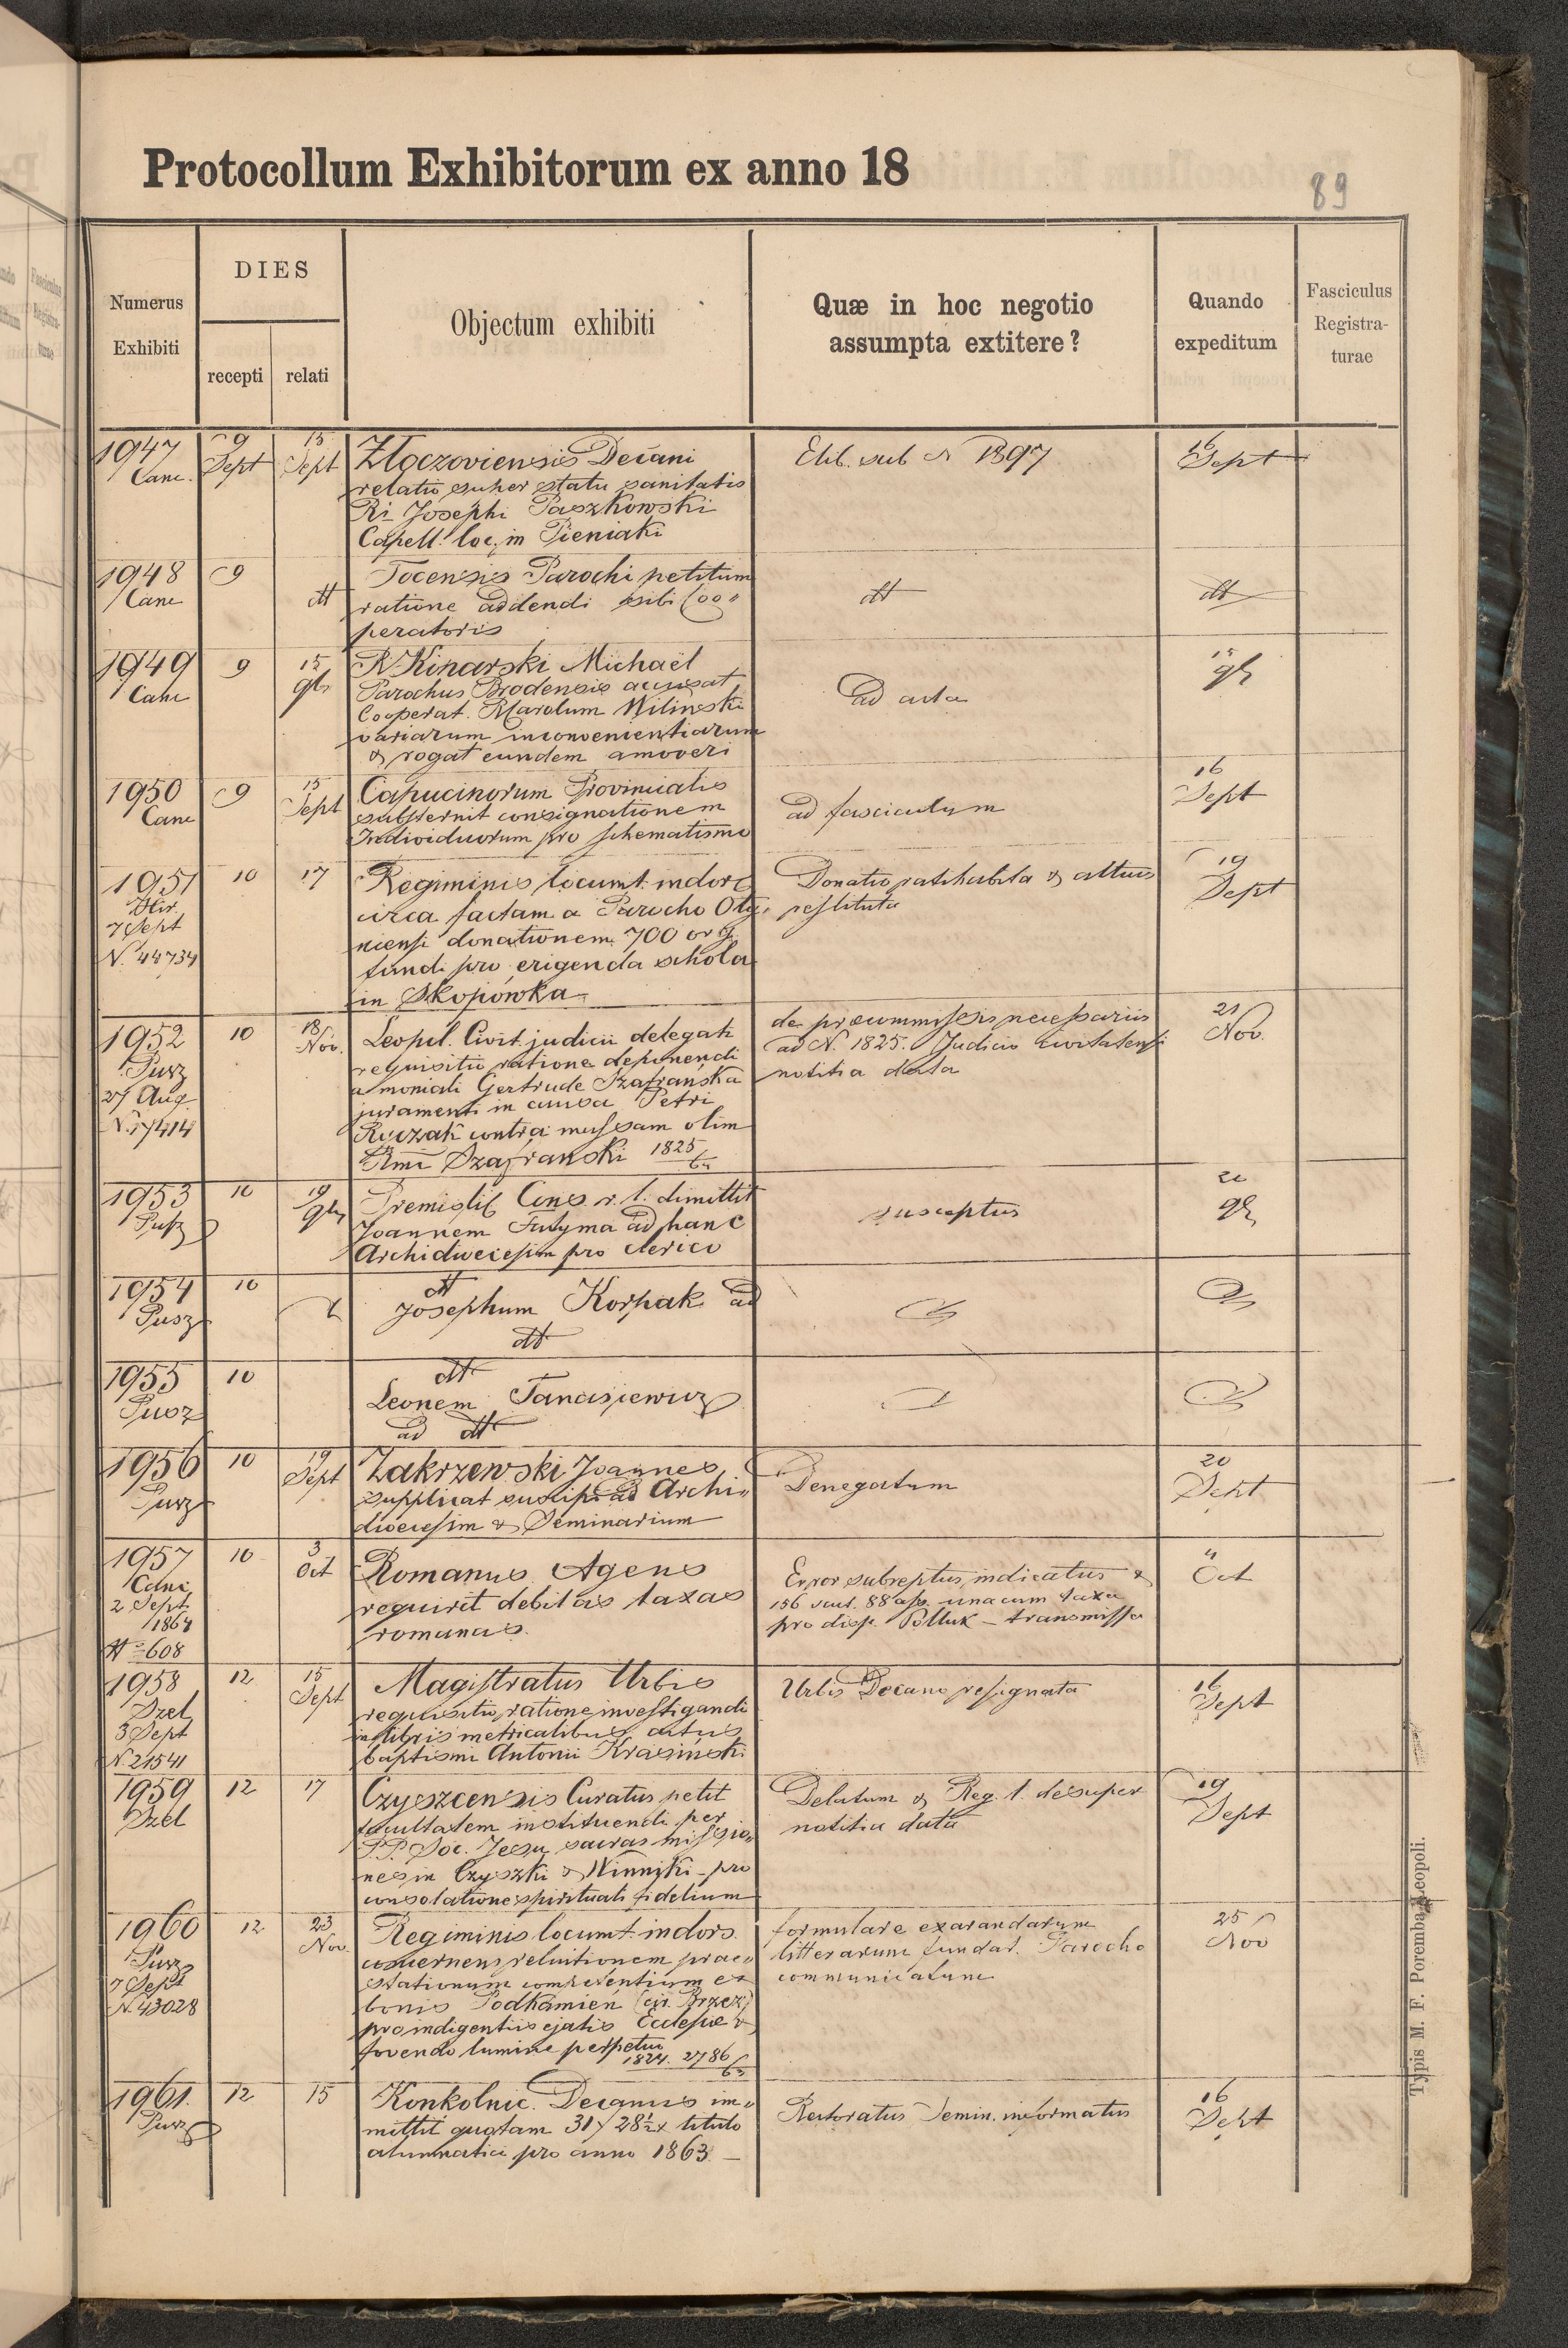 Protocollum Exhibitorum ex anno 18
89
Numerus Exhibiti
DIES
recepti relati
Objectum exhibiti
Quæ in hoc negotio assumpta extitere?
Quando expeditum
Fasciculus Registra-turae
1947 Canc. 9 Sept 15 Sept
Złoczoviensis Decani
relatio super statu sanitatis
Ri Josephi Paszkowski
Capell. loc. in Pieniaki
Elib. sub N 1897
16 Sept
1948 Canc 9 dtt
Tocensis Parochi petitum
ratione addendi sibi Coo„
peratoris
dtt
dtt
1949 Canc 9 15 9br
R. Kinarski Michaël
Parochus Brodensis accusat
Cooperat. Karolum Wilinski
variarum inconvenientiarum
& rogat eundem amoveri
Ad acta
15 9br
1950 Canc 9 15 Sept
Capucinorum Provincialis
substernit consignationem
Individuorum pro schematismo
ad fasciculum
16 Sept
1951
7 Sept
N. 44734
10 17
Regiminis locumt. indors
circa factam a Parocho Oty„
niensi donationem 700 org.
fundi pro erigenda schola
in Skopowka
Donatio ratihabita & altuis
restituta
19 Sept
1952 Pusz
27 Aug
N. 17414
10 18 Nov.
Leopil. Civit. judicii delegati
requisitio ratione deponendi
a moniali Gertrude Szafrańska
juramenti in causa Petri
Ruczak contra massam olim
Rmi Szafranski 1825
de praeummissis necessariis
ad N. 1825. Judicio civitatensi
notitia data
21 Nov.
1953 Pusz 10 19 9br
Premislis. Cons. r. l. dimittit
Joannem Futyma ad hanc
Archidioecesim pro clerico
susceptus
20 9br
1954 Pusz 10
dtt
Josephum Korpak ad
dtt
1955 Pusz 10
dtt
Leonem Tanasiewicz
ad dtt
1956 Pusz 10 19 Sept
Zakrzewski Joannes
supplicat suscipi ad Archi„
dioecesim & Seminarium
Denegatum
20 Sept
1957 Canc
2 Sept
1864
N 608
10 3 Oct
Romanus Agens
requirit debitas taxas
romanas.
Error subreptus indicatus &
156 scut. 88 una cum taxa
pro disp. Pollux – transmissa
4 Oct
1958 Szel
3 Sept
N. 21541
12 15 Sept
Magistratus Urbis
requisitio ratione investigandi
in libris metricalibus actus
baptismi Antonii Krasiński
Urbis Decano resignata
16 Sept
1959 Szel 12 17
Czyszcensis Curatus petit
facultatem instituendi per
P.P. Soc. Jesu sacras missio„
nes in Czyszki & Winniki pro
consolatione spirituali fidelium
Delatum & Reg. l. desuper
notitia data
19 Sept
1960 Pusz
7 Sept
N. 43028
12 23 Nov.
Regiminis locumt. indors.
concernens reluitionem prae„
stationum competentium ex
bonis Podkamień (cir. Brzez)
pro indigentiis ejatis Ecclesiae &
fovendo lumine perpetuo
1824. 2786
formulare exarandarum
litterarum fundat. Parocho
communicatum
25 Nov
1961. Pusz 12 15
Konkolnic. Decanus im„
mittit quotam 31 f 28½ x titulo
alumnatici pro anno 1863. –
Rectoratus Semin. informatus
16 Sept
Typis M. F. Poremba Leopoli.